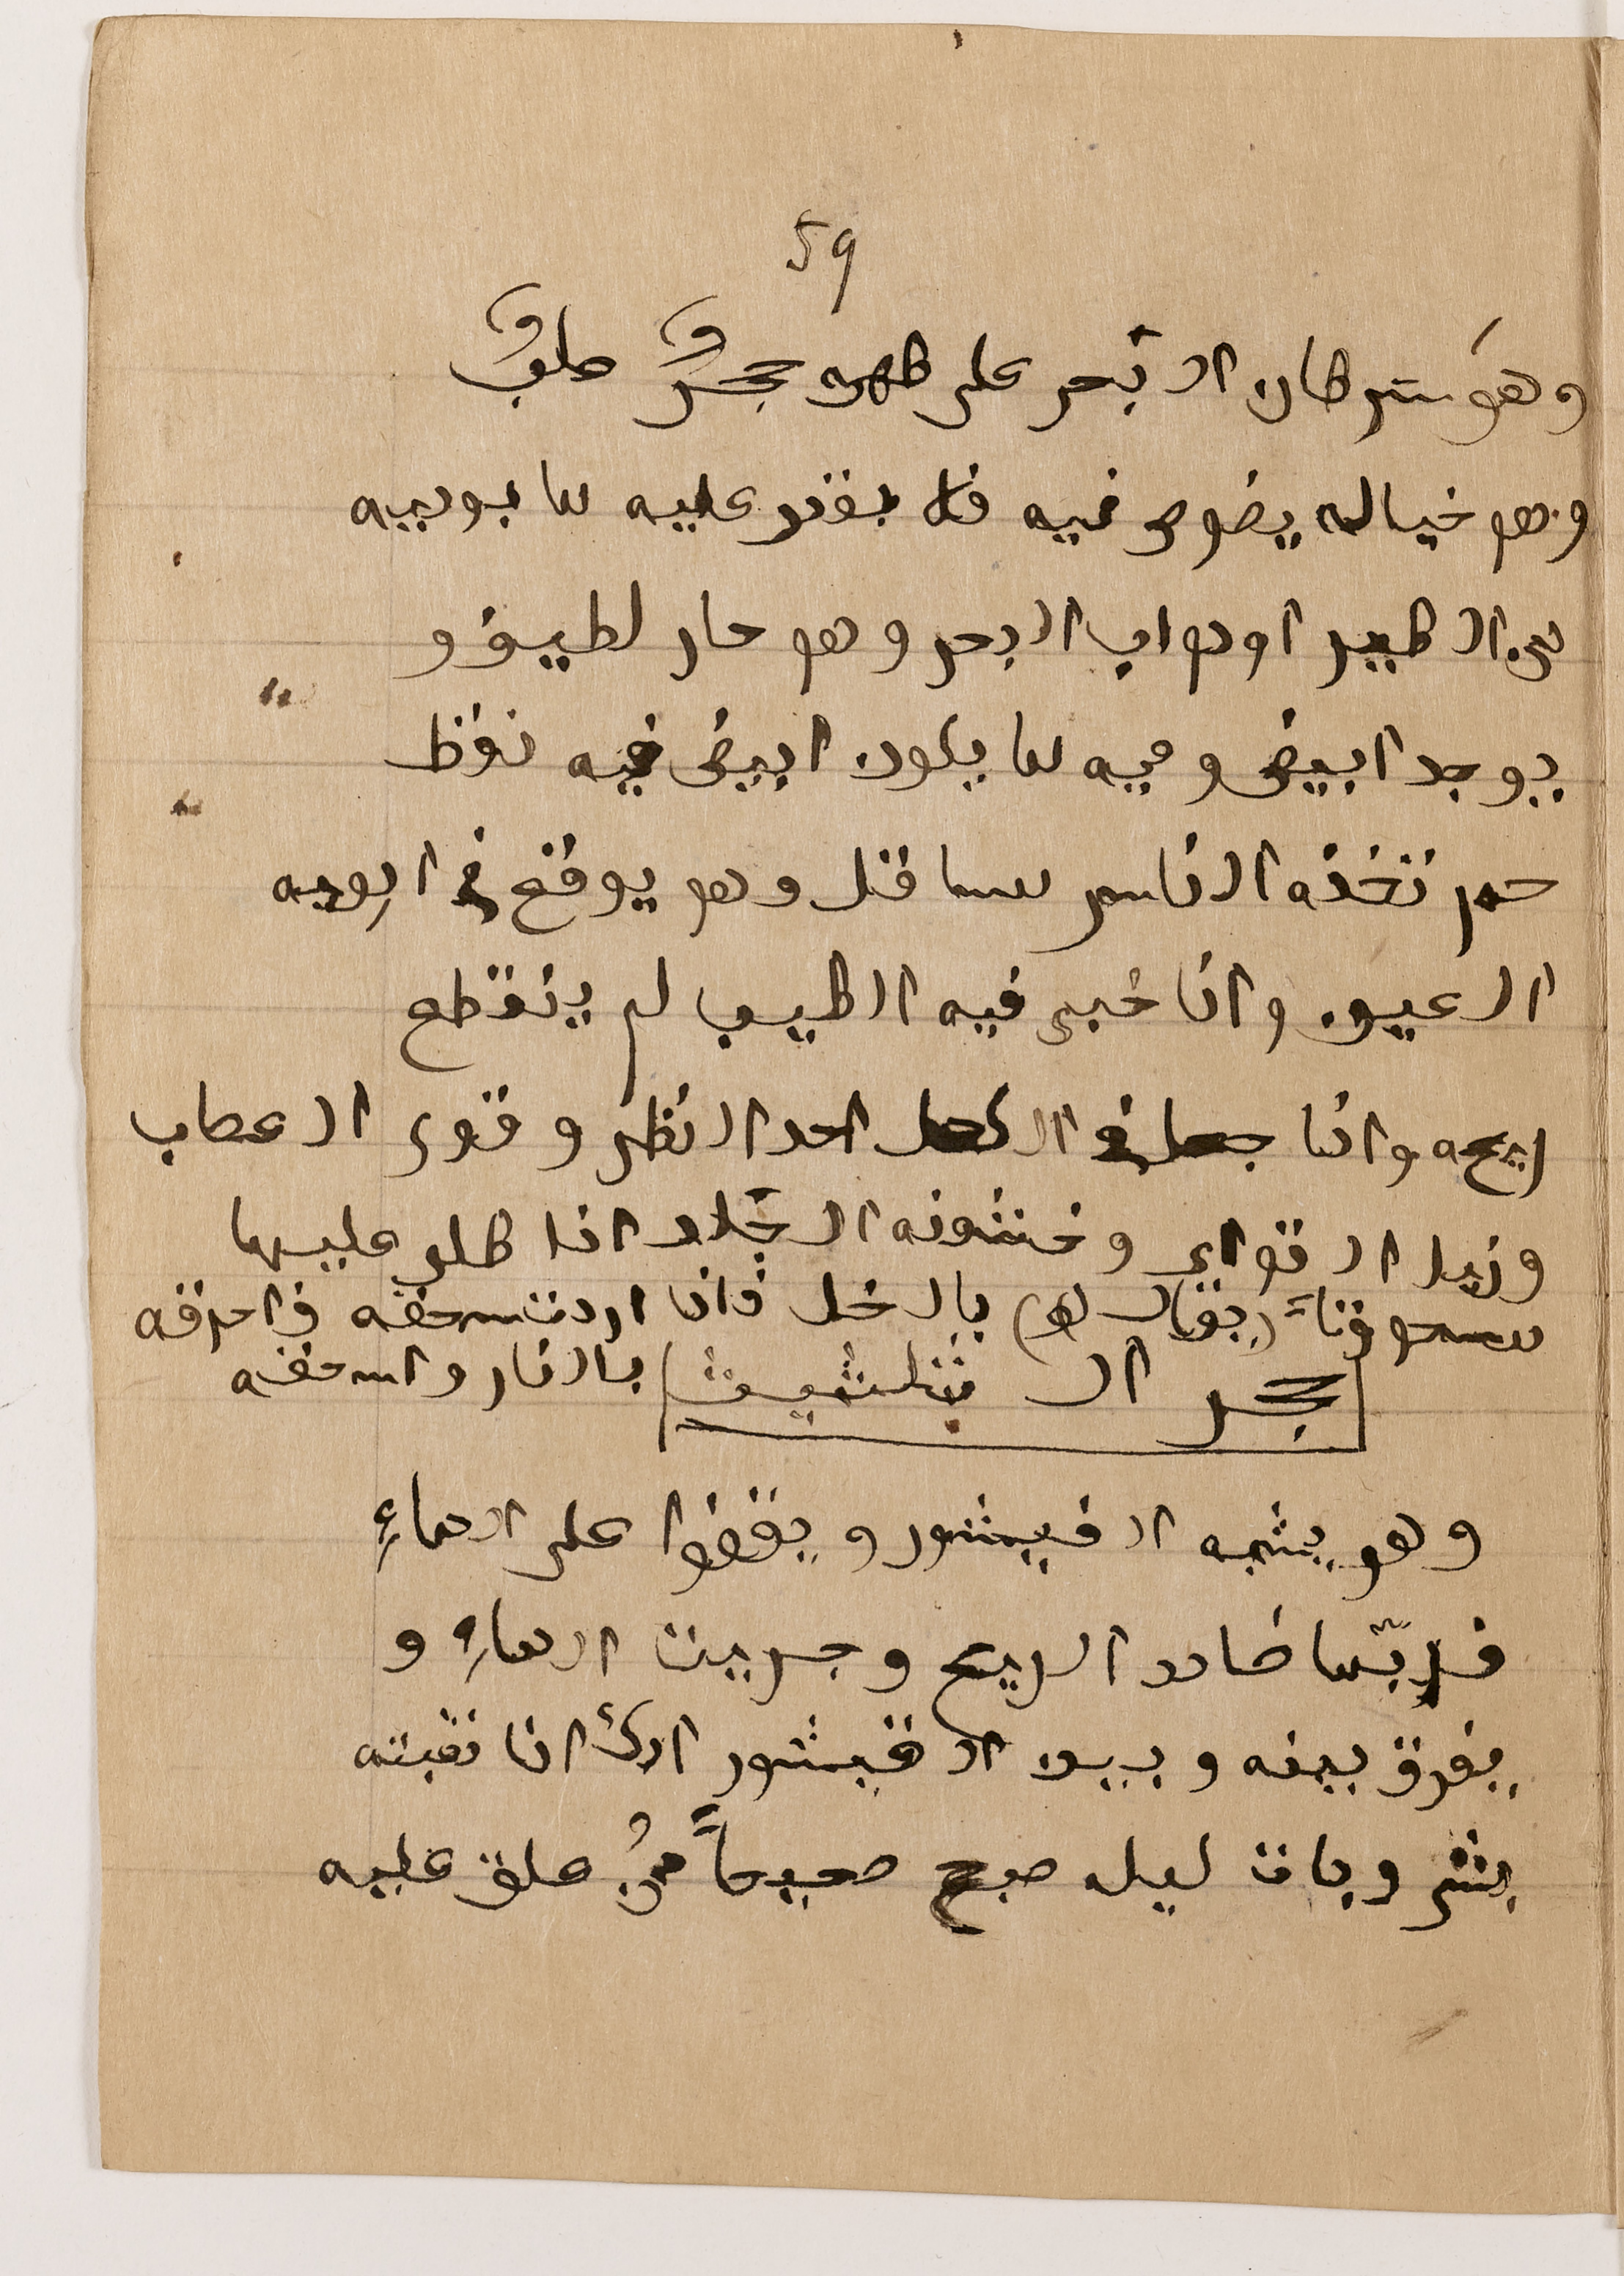 59
وهو سرطان البحر على ظهره حجرٌ صلبٌ
وهو خياله يغوص فيه فلا يقدر عليه ما يوديه
من الطير او دواب البحر وهو حار لطيف و
يوجد ابيض وفيه ما يكون ابيض فيه نقط
حمر تخذه الناس مساقل وهو يوقع في ادويه
العيون واذا خبى فيه الطيب لم ينقطع
ريحه واذا جعل في الكحل احد النظر وقوى الاعصاب
وزيل القوابي وخشونه الجلد اذا طلي عليها
مسحوقاً (يقال له) بالخل فاذا اردت سحقه فاحرقه
حجر التلشيث بالنار واسحقه
وهو يشبه الفيشور ويقفوا على الماءِ
فربّما ضادد الريح وجريت الماءِ و
يفرق بينه وبين الفيشور انك اذا نقبته
بشر وبات ليله صبح صحيحاً مَنْ علق عليه